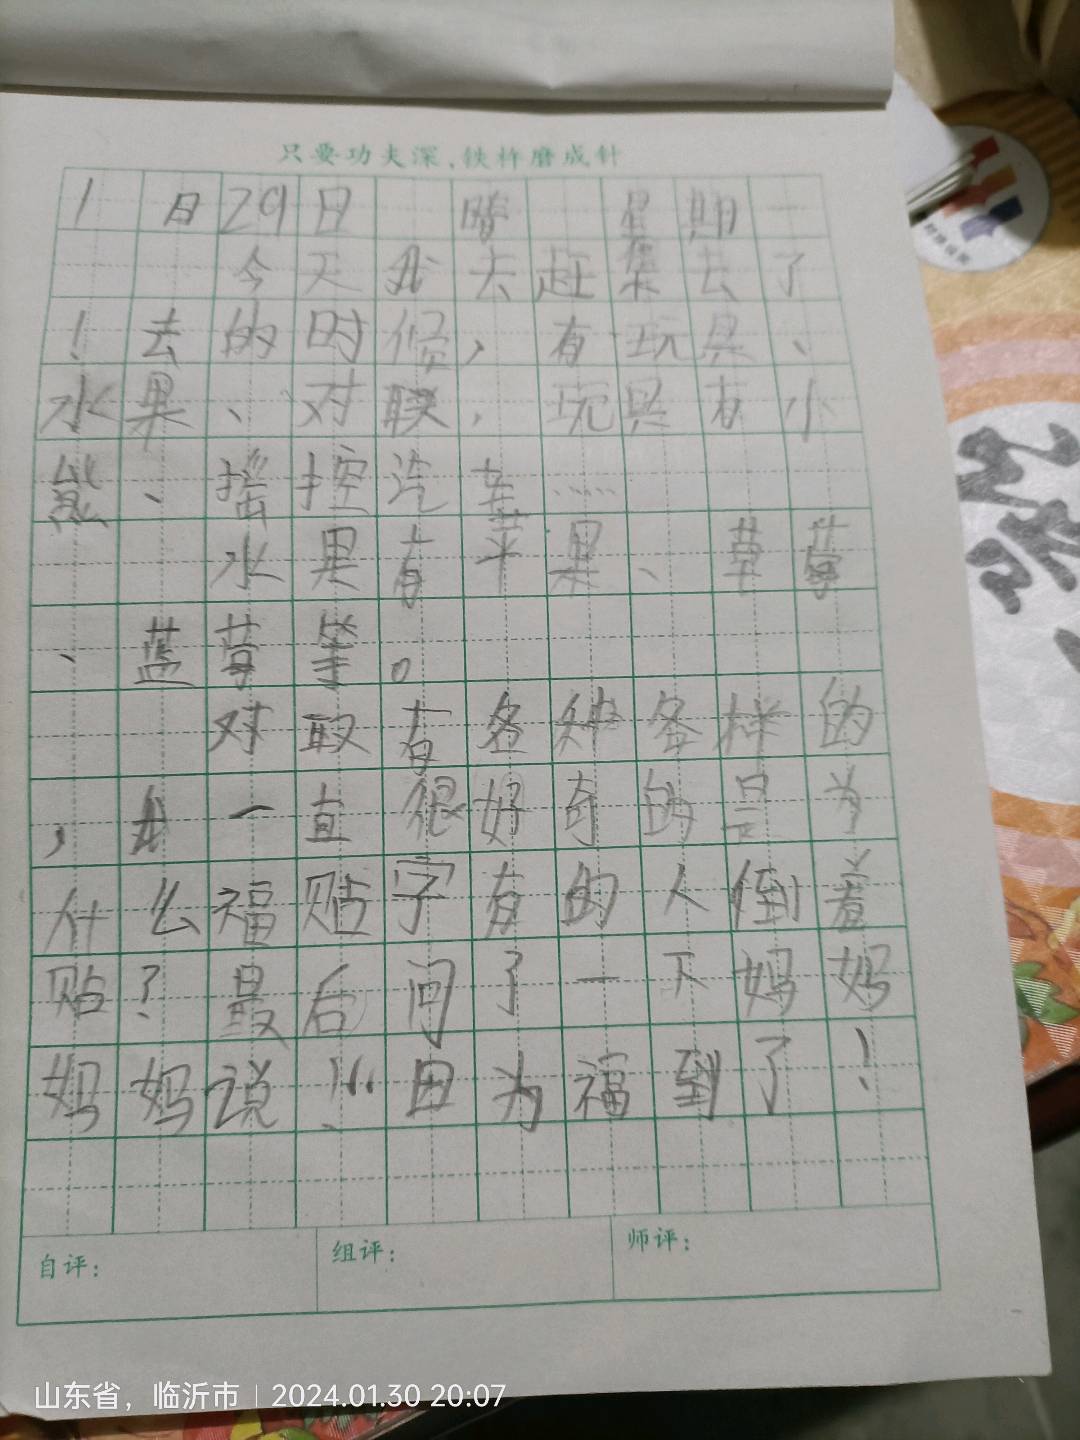 只要功夫深,铁杵磨成针
1 日29日 晴 星期一
今天我去赶集去了
!去的时候,有玩具、
水果、对联,玩具有小
熊、摇控汽车……
水果有苹果、草莓
、蓝莓等。
对联有各种各样的
,我一直很好奇的是为
什么福贴字有的人倒着
贴?最后问了一下妈妈
妈妈说:“因为福到了!
自评:
组评:
师评:
山东省,临沂市 | 2024.01.30 20:07